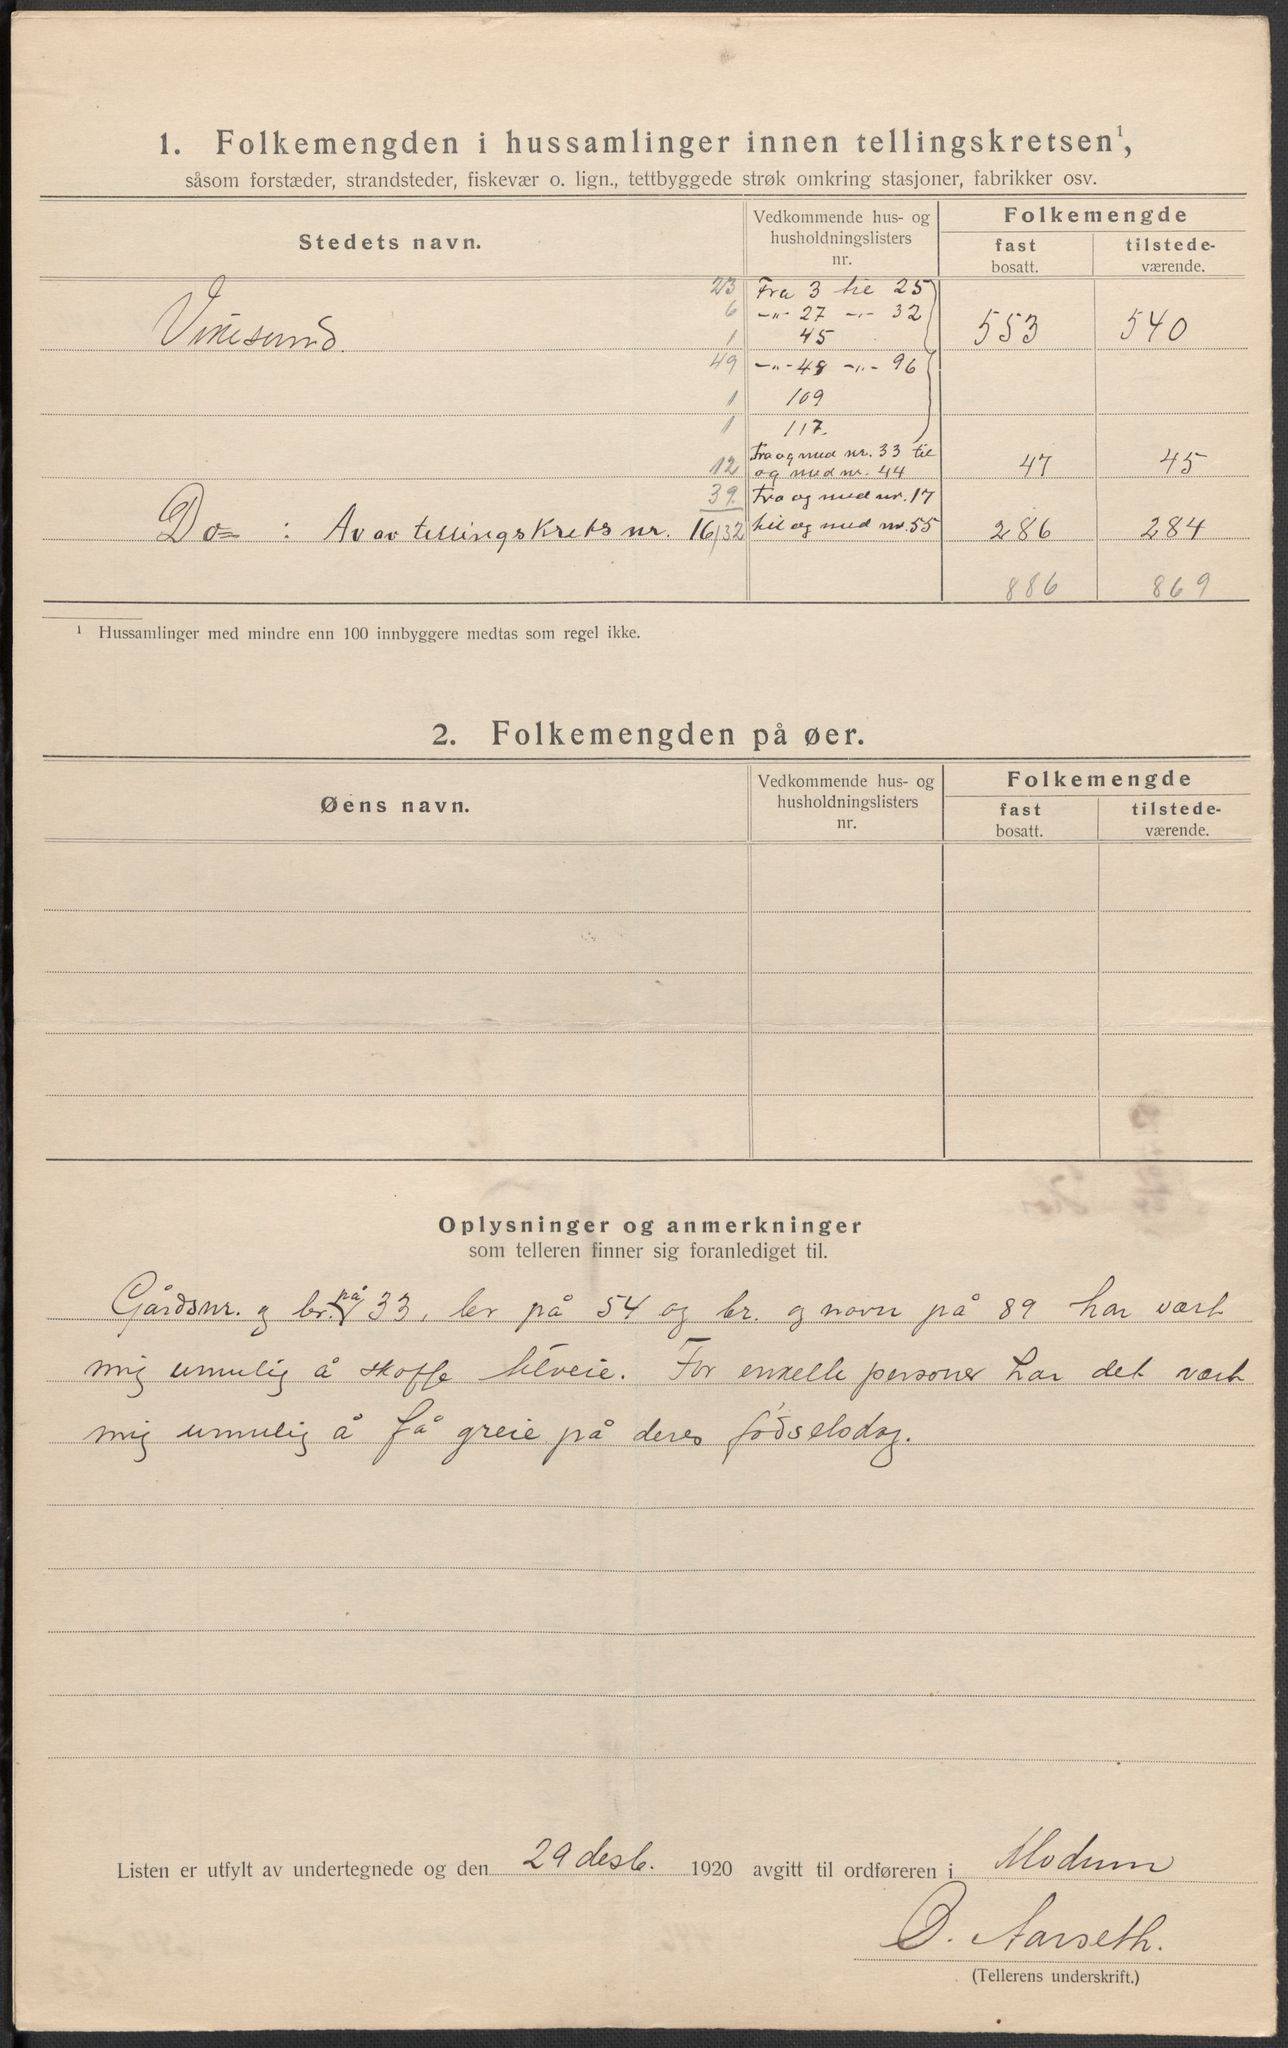 1. Folkemengden i hussamlinger innen tellingskretsen¹,
såsom forstæder, strandsteder, fiskevær o. lign., tettbyggede strøk omkring stasjoner, fabrikker osv.
Stedets navn. Vedkommende hus- og husholdningslisters nr. Folkemengde fast bosatt. tilstede-værende.
23 Fra 3 til 25
6 -"- 27 -"- 32
Vikesund 1 45 553 540
49 -"- 48 -"- 96
1 109
1 117.
Fra og med nr. 33 til
12 og med nr. 44 47 45
39 Fra og med nr. 17
Do : Av tellingskrets nr. 16 132 til og med nr. 55 286 284
886 869
¹ Hussamlinger med mindre enn 100 innbyggere medtas som regel ikke.
2. Folkemengden på øer.
Øens navn. Vedkommende hus- og husholdningslisters nr. Folkemengde fast bosatt. tilstede-værende.
Oplysninger og anmerkninger
som telleren finner sig foranlediget til.
Gårdsnr. og br. på 33, br på 54 og br. og navn på 89 har vært
mig umulig å skaffe tilveie. For enkelte personer har det vært
mig umulig å få greie på deres fødselsdag.
Listen er utfylt av undertegnede og den 29 desb. 1920 avgitt til ordføreren i Modum
O. Aarseth.
(Tellerens underskrift.)